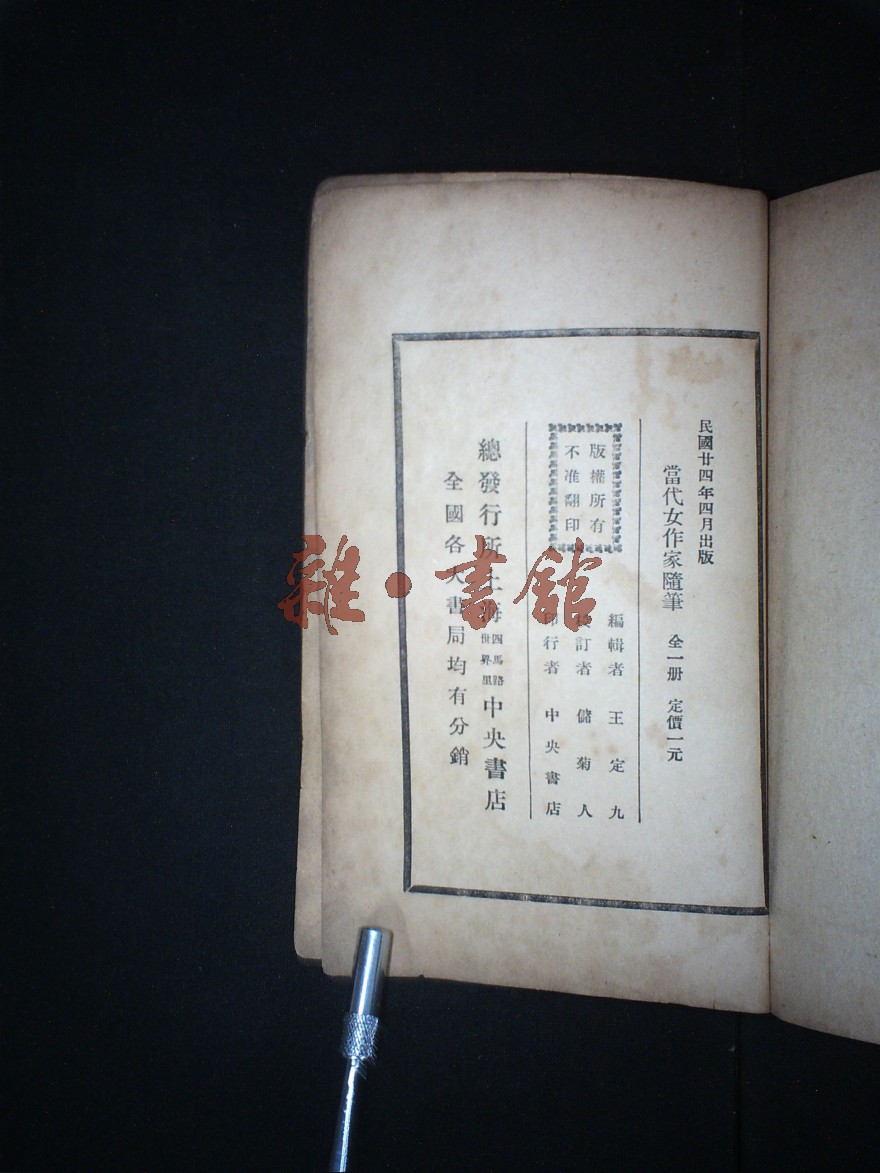 民國廿四年四月出版
當代女作家隨筆 全一册 定價一元
版權所有
不准翻印
編輯者 王定九
校訂者 儲菊人
印行者 中央書店
總發行所上海四馬路世界里中央書店
全國各大書局均有分銷
雜·書館